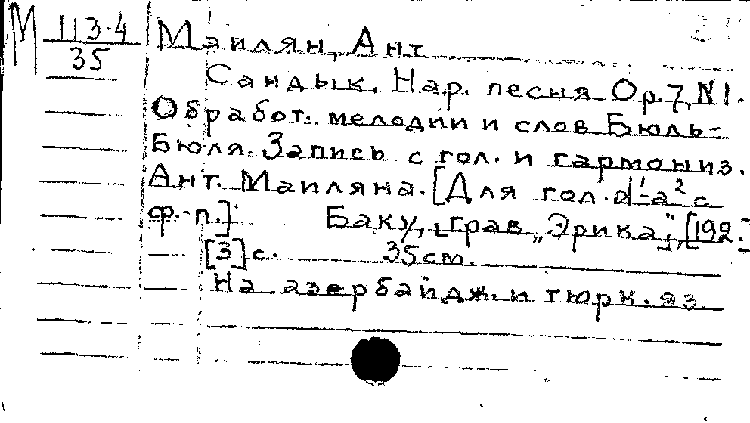 М 113-4
35
Маилян, Ант
Сандык. Нар. песня Ор. 7, N 1.
Обработ. мелодии и слов Бюль-
Бюля. Запись с гол. и гармониз.
Ант. Маиляна. [Для гол. d¹-a² с
ф.-п.] Баку, грав. „Эрика", [192.]
[3] с. 35 cm.
На азербайдж. и тюрк. яз.